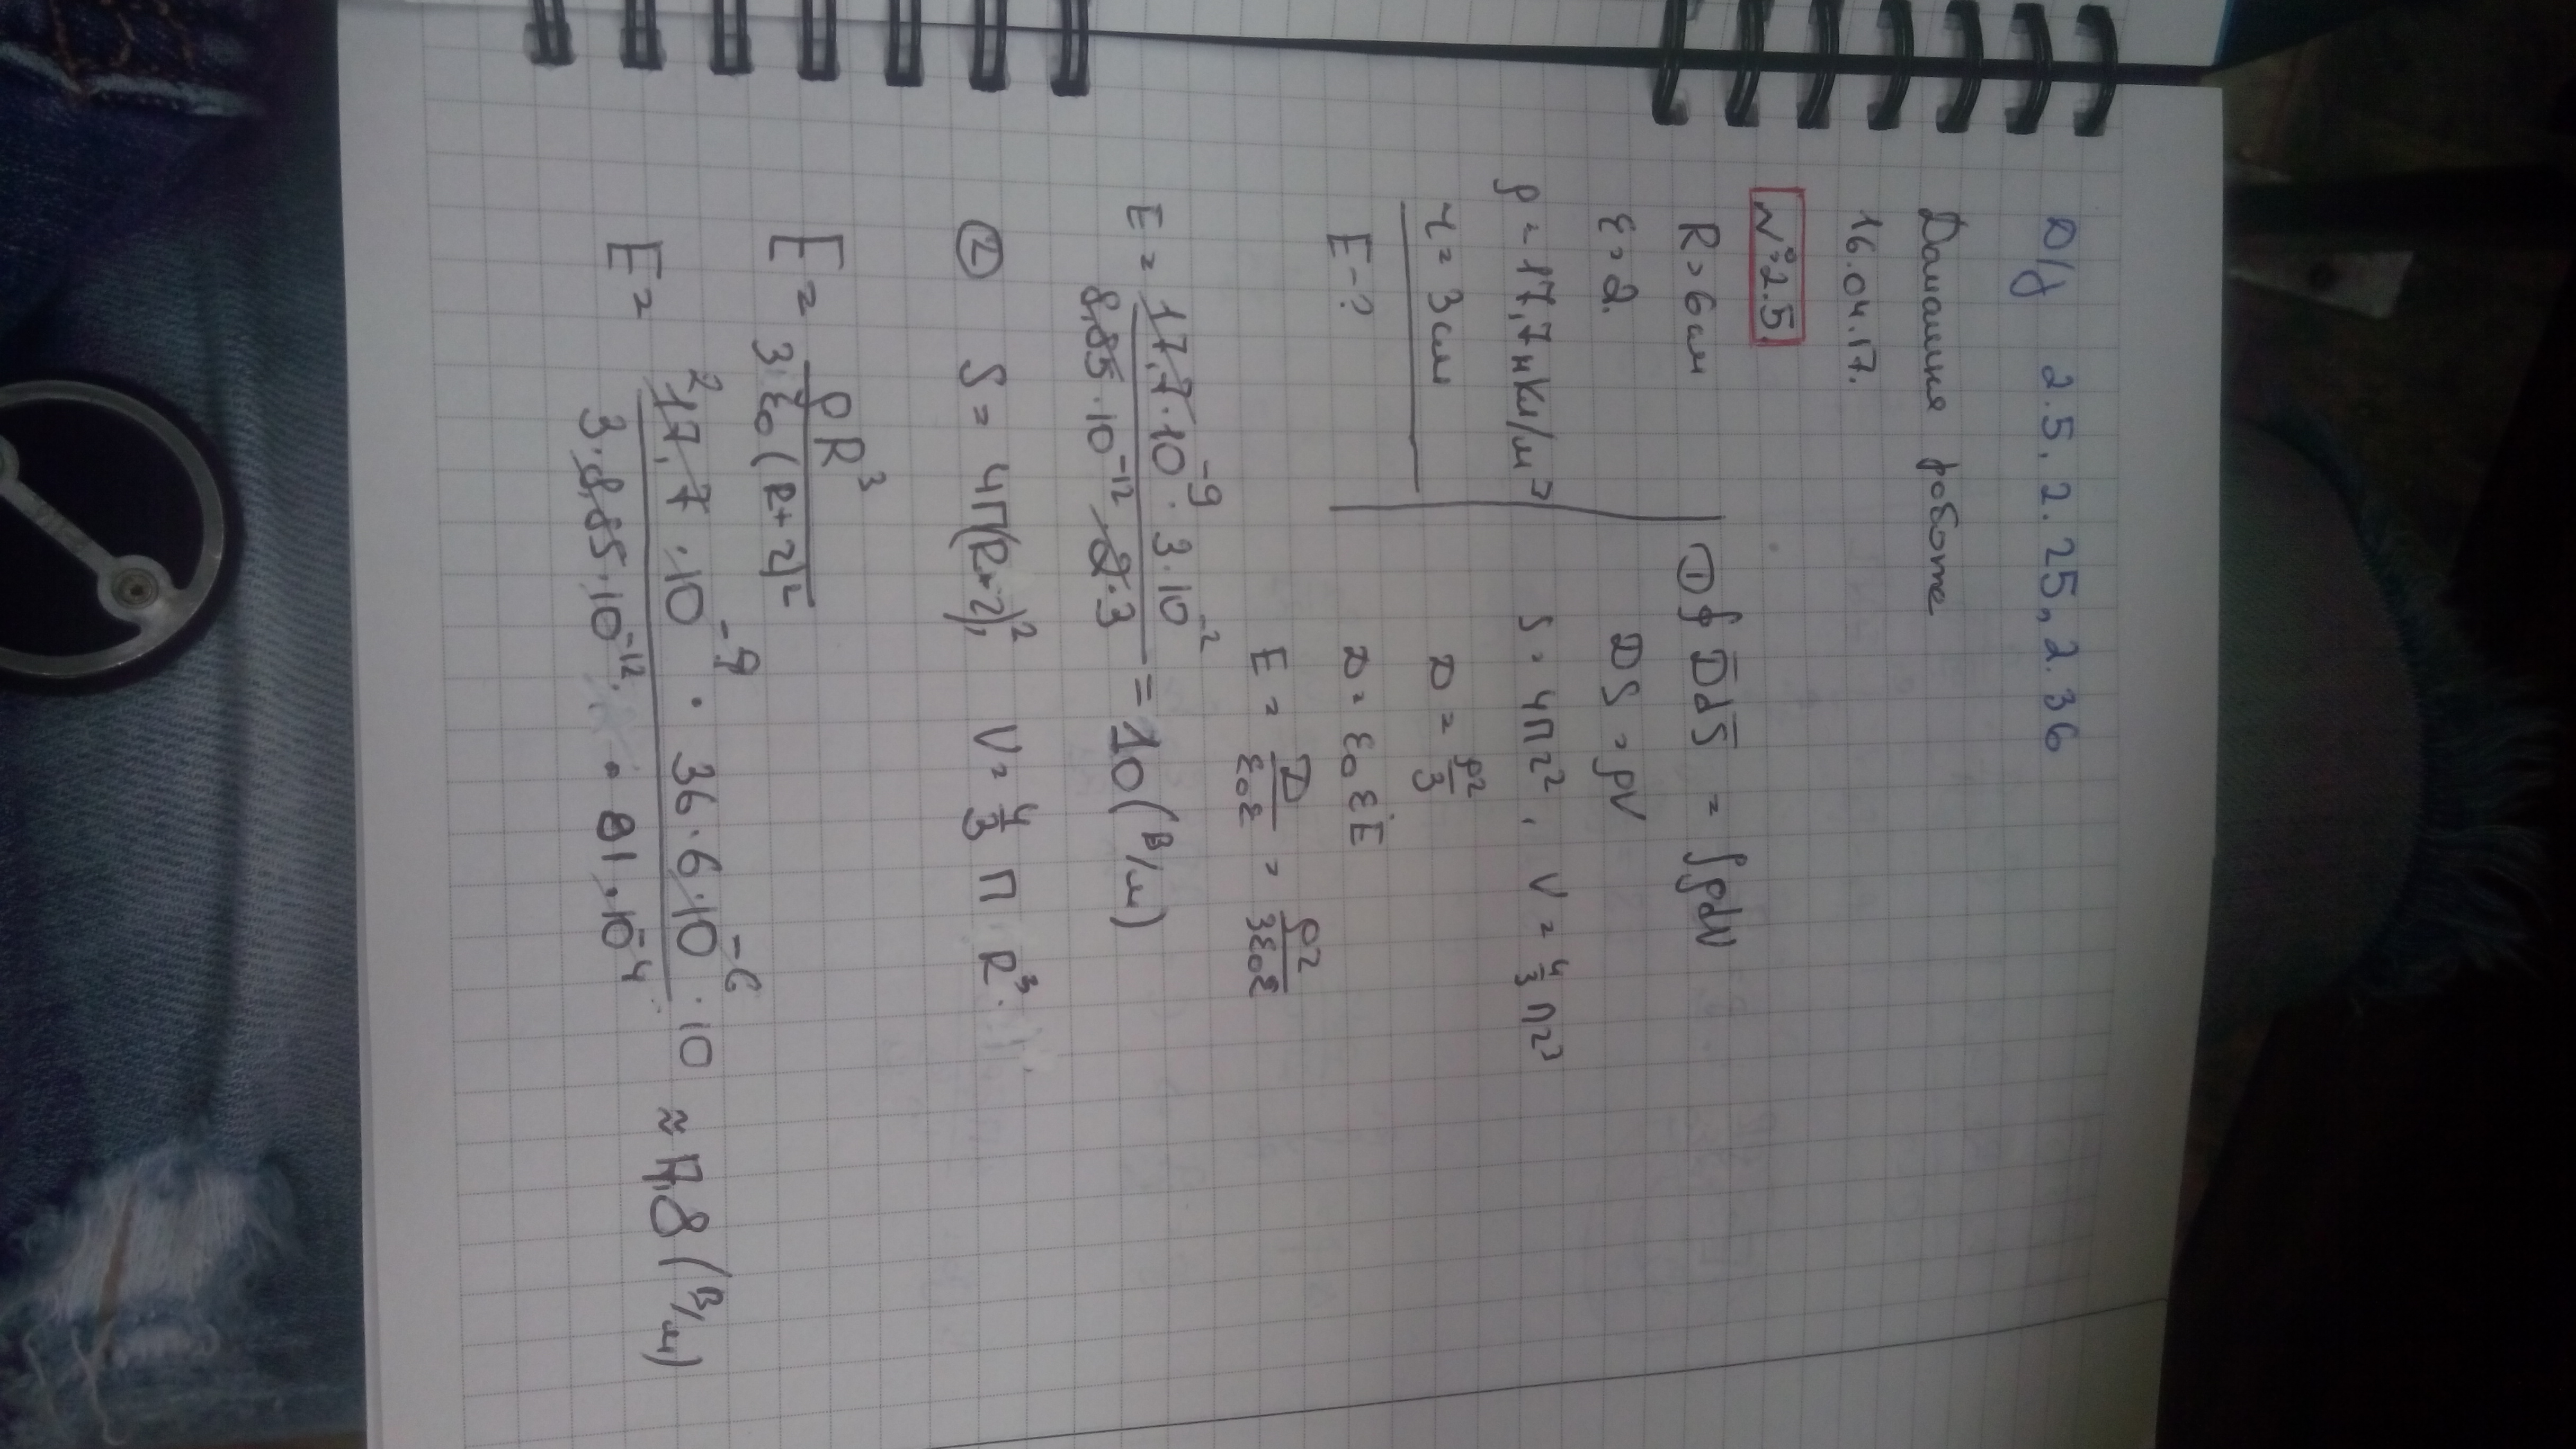 Д/з 2.5, 2.25, 2.36
Домашня робота
16.04.17.
№2.5.
R = 6 см
ε = 2.
ρ = 17,7 нКл/м³
r = 3 см
E - ?
① ∮ D̅dS̅ = ∫ρdV
DS = ρV
S = 4πr², V = 4/3 πr³
D = ρr/3
D = ε₀εE
E = D/ε₀ε = ρr/3ε₀ε
E = 17,7·10⁻⁹·3·10⁻² / 8,85·10⁻¹²·2·3 = 10 (В/м)
② S = 4π(R+r)², V = 4/3 π R³.
E = ρR³ / 3·ε₀(R+r)²
E = ²17,7·10⁻⁹ · 36·6·10⁻⁶ ·10 / 3·8,85·10⁻¹² · 81·10⁻⁴ ≈ 17,8 (В/м)